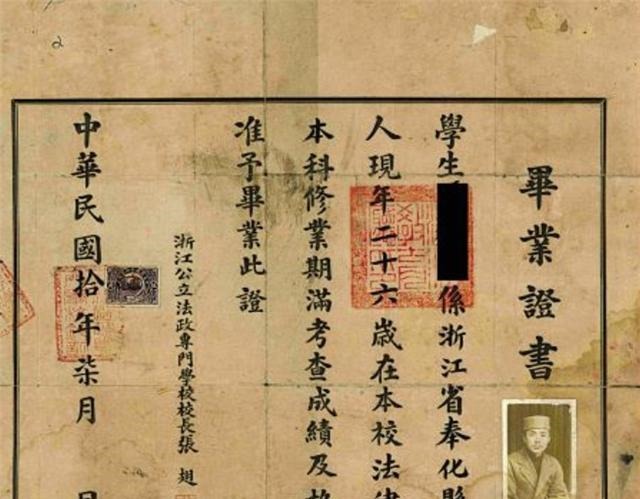 畢業證書
學生
係浙江省奉化縣
人現年二十六歲在本校法律
本科修業期滿考查成績及
准予畢業此證
浙江公立法政專門學校校長張
中華民國拾年柒月
日
2